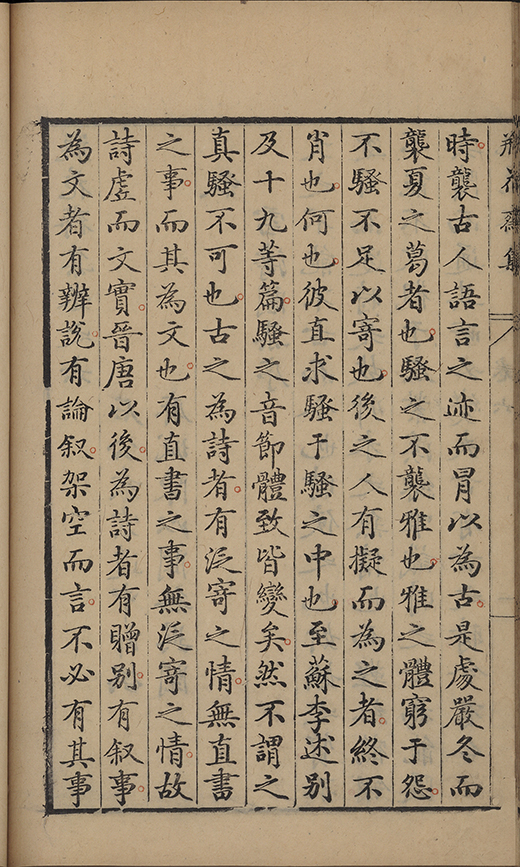 瓶花齋集
時襲古人語言之迹而冒以為古是處嚴冬而
襲夏之葛者也騷之不襲雅也雅之體窮于怨
不騷不足以寄也後之人有擬而為之者終不
肖也何也彼直求騷于騷之中也至蘇李述別
及十九等篇騷之音節體致皆變矣然不謂之
真騷不可也古之為詩者有泛寄之情無直書
之事而其為文也有直書之事無泛寄之情故
詩虛而文實晉唐以後為詩者有贈別有叙事
為文者有辨說有論叙架空而言不必有其事